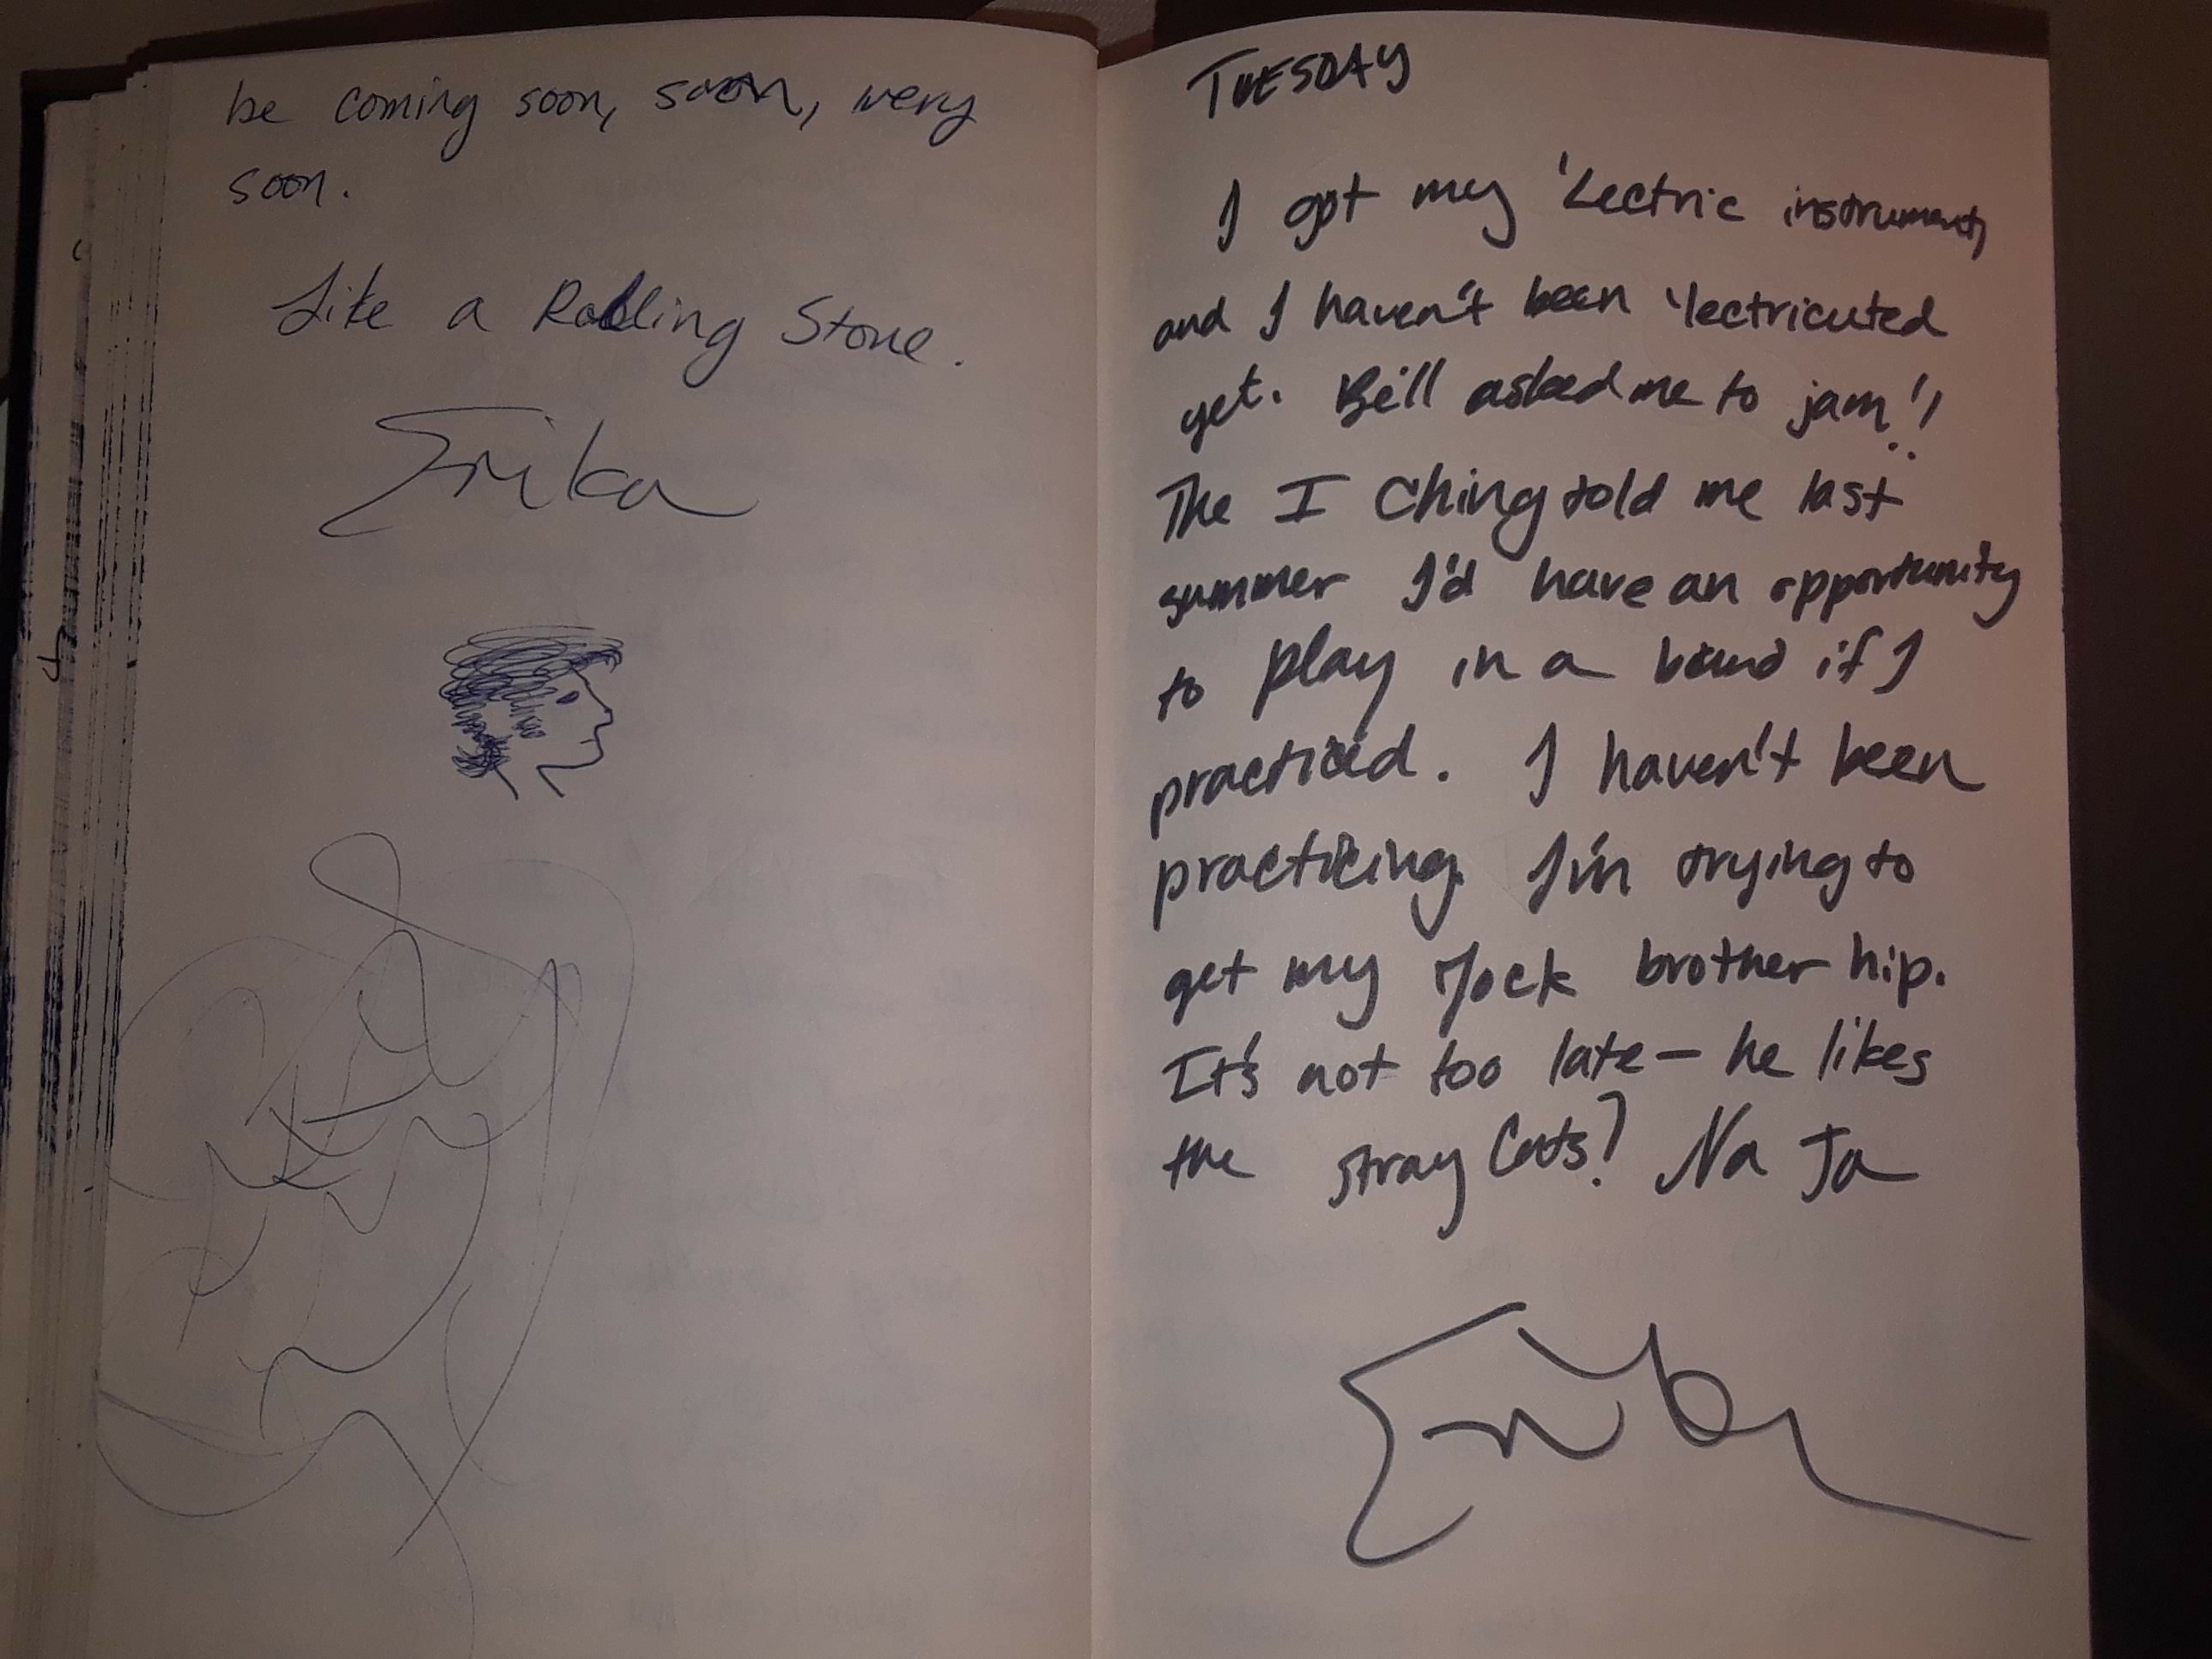 be coming soon, soon, very
soon.
Like a Rolling Stone.
Erika
TUESDAY
I got my 'Lectric instrument,
and I haven't been 'lectricuted
yet. Bill asked me to jam!!
The I Ching told me last
summer I'd have an opportunity
to play in a band if I
practiced. I haven't been
practicing. I'm trying to
get my Jock brother hip.
It's not too late — he likes
the Stray Cats? Na Ja
Erika